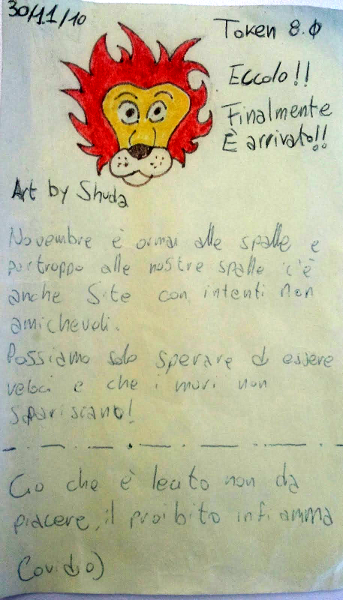 30/11/10
Token 8.0
Eccolo!!
Finalmente
È arrivato!!
Art by Shuda
Novembre è ormai alle spalle e
purtroppo alle nostre spalle c'è
anche Site con intenti non
amichevoli.
Possiamo solo sperare di essere
veloci e che i muri non
spariscano!
Ciò che è lecito non da
piacere, il proibito infiamma
(ovidio)